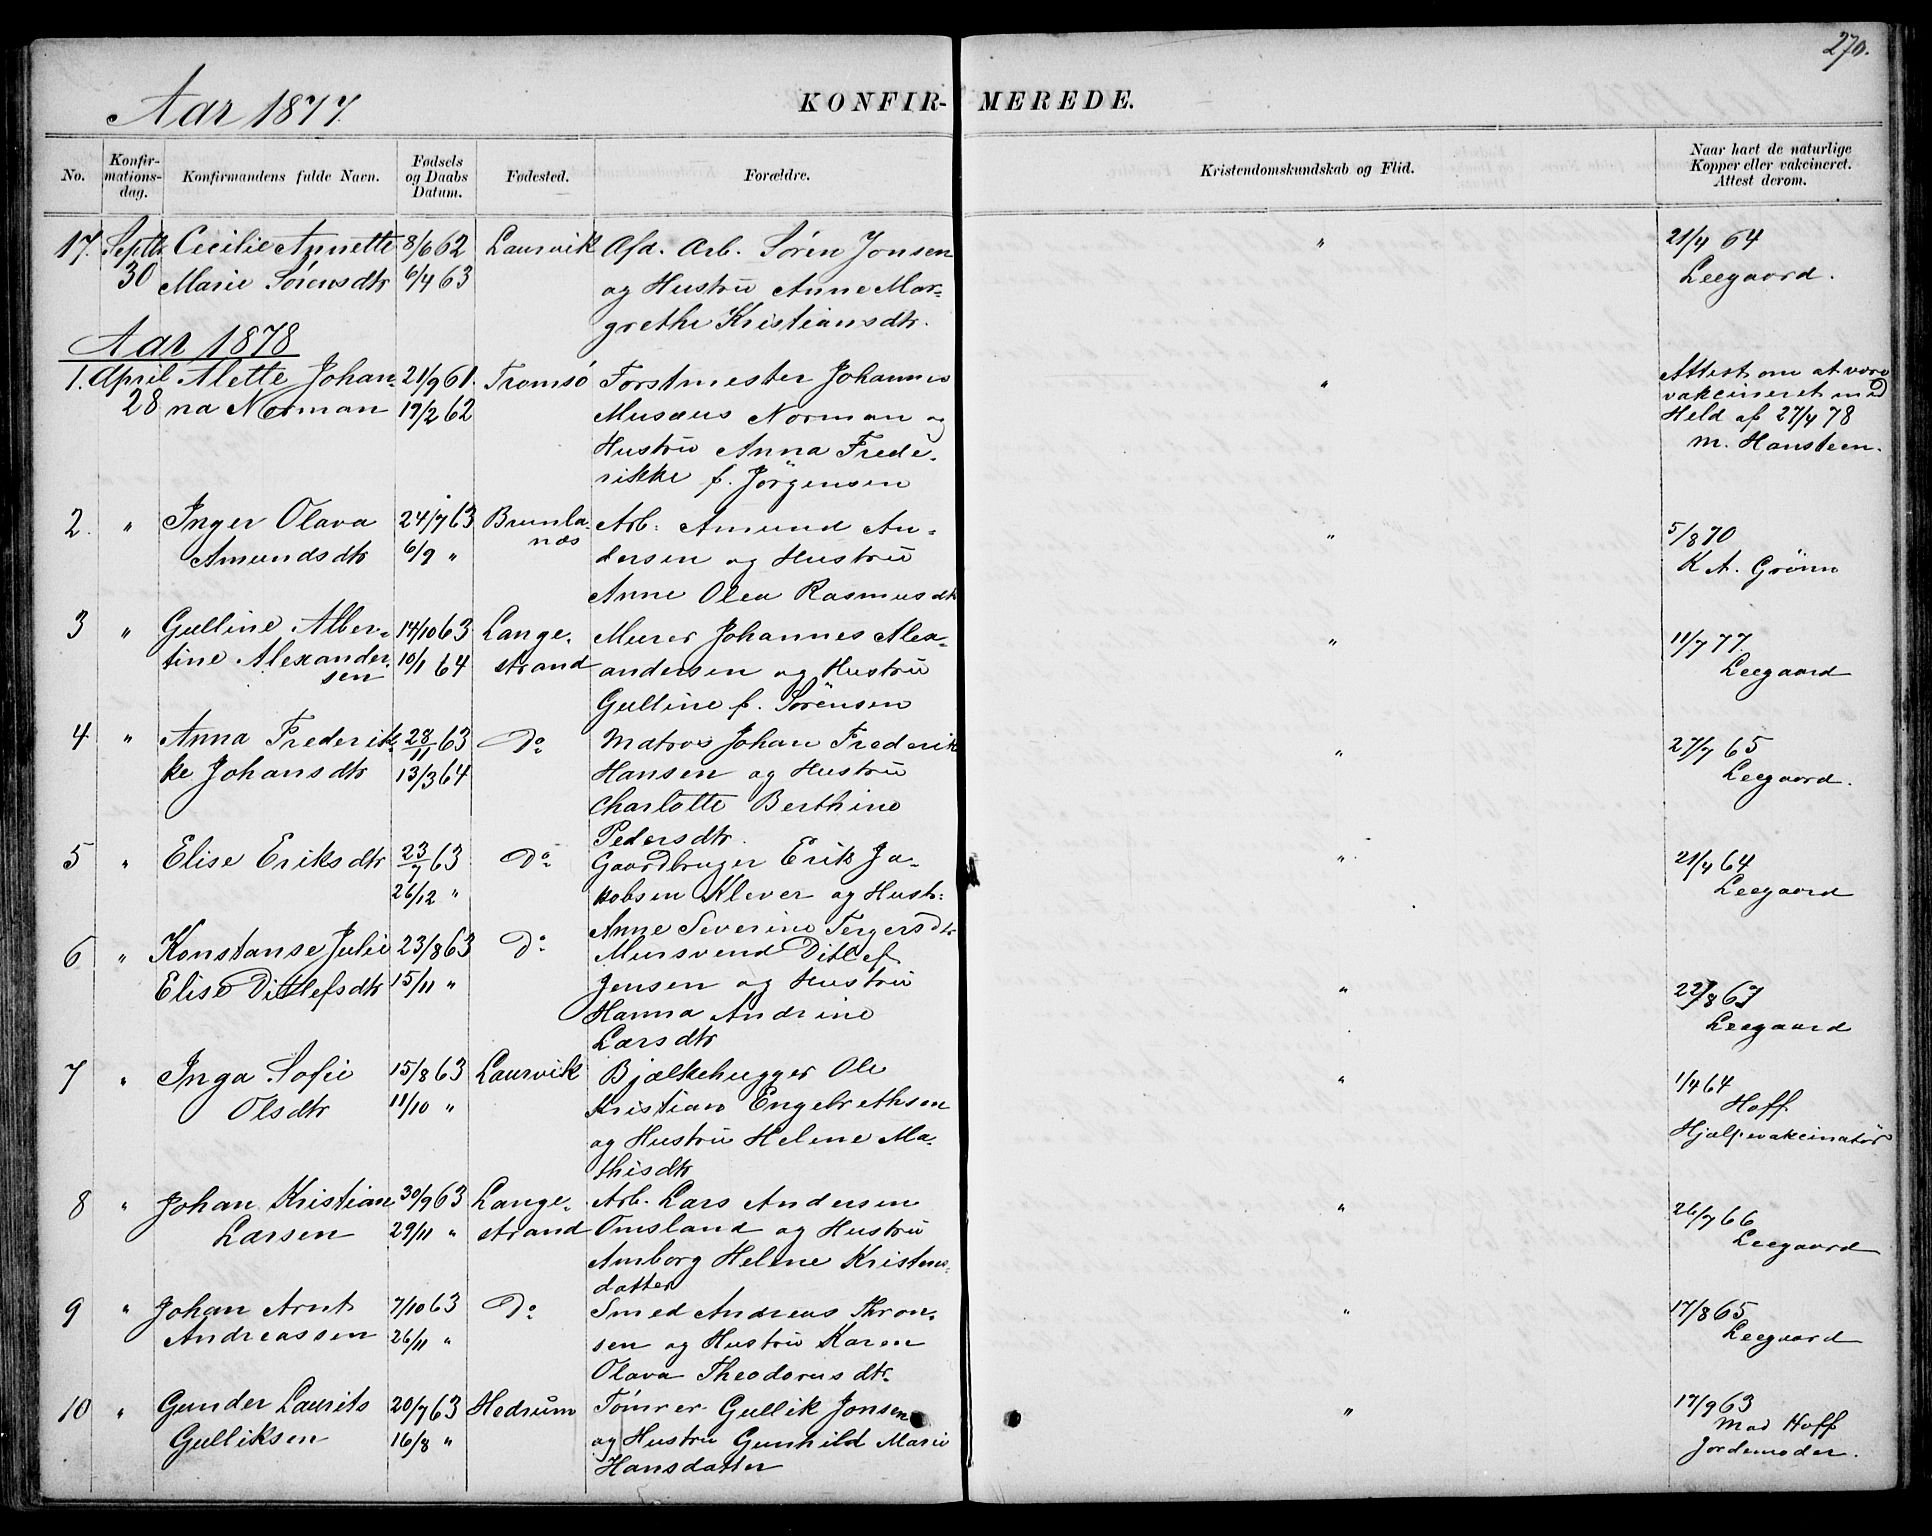 270.
Aar 1877.
KONFIR-MEREDE.
No.
Konfir-
mations-
dag.
Konfirmandens fulde Navn.
Fødsels
og Daabs
Datum.
Fødested.
Forældre.
Kristendomskundskab og Flid.
Naar havt de naturlige
Kopper eller vakcineret.
Attest derom.
17. Septb. Cecilie Annette 8/6 62 Laurvik Afd. Arb. Søren Jonsen " 21/4 64
30 Marie Sørensdtr 6/4 63 og Hustru Anne Mar- Leegaard.
grethe Kristiansdtr.
Aar 1878
1. April Alette Johan- 21/9 61. Tromsø Forstmester Johannes " Attest om at være
28 na Norman 19/2 62 Musæus Norman og vakcineret med
Held af 27/4 78
Hustru Anna Frede- M. Hansteen.
rikke f. Jørgensen
2. " Inger Olava 24/7 63 Brunla- Arb. Amund An- " 5/8 70
Amundsdtr 6/9 " næs dersen og Hustru K A. Grønn
Anne Olea Rasmusdtr
3 " Gulline Alber- 14/10 63 Lange- Murer Johannes Alex- " 11/7 77.
tine Alexander- 10/1 64 strand andersen og Hustru Leegaard
sen Gulline f. Sørensen
4 " Anna Frederik- 28/11 63 Do Matros Johan Frederik " 27/7 65
ke Johansdtr 13/3 64 Hansen og Hustru Leegaard.
Charlotte Berthine
Pedersdtr.
5 " Elise Eriksdtr 23/7 63 Do Gaardbruger Erik Ja- " 21/4 64
26/12 " kobsen Klever og Hustr: Leegaard
Anne Severine Tergersdtr
6 " Konstanse Julie 23/8 63 Do Mursvend Ditlef
Elise Ditlefsdtr 15/11 " Jensen og Hustru " 22/8 67
Hanna Andrine Leegaard
Larsdtr
7 " Inga Sofie 15/8 63 Laurvik Bjælkehugger Ole " 1/4 64
Olsdtr 11/10 " Kristian Engebrethsen Hoff
og Hustru Helene Ma- Hjælpevakcinatør
thisdtr
8 " Johan Kristian 30/9 63 Lange- Arb. Lars Andersen " 26/7 66
Larsen 29/11 " strand Omsland og Hustru Leegaard
Amborg Helene Kristens-
datter
9 " Johan Arnt 7/10 63 Do Smed Andreas Thron- " 17/8 65
Andreassen 26/11 " sen og Hustru Karen Leegaard
Olava Theodorusdtr.
10 " Gunder Laurits 20/7 63 Hedrum Tømrer Gullik Jonsen " 17/9 63
Gulliksen 16/8 " og Hustru Gunhild Marie Mad Hoff
Hansdatter Jordemoder.